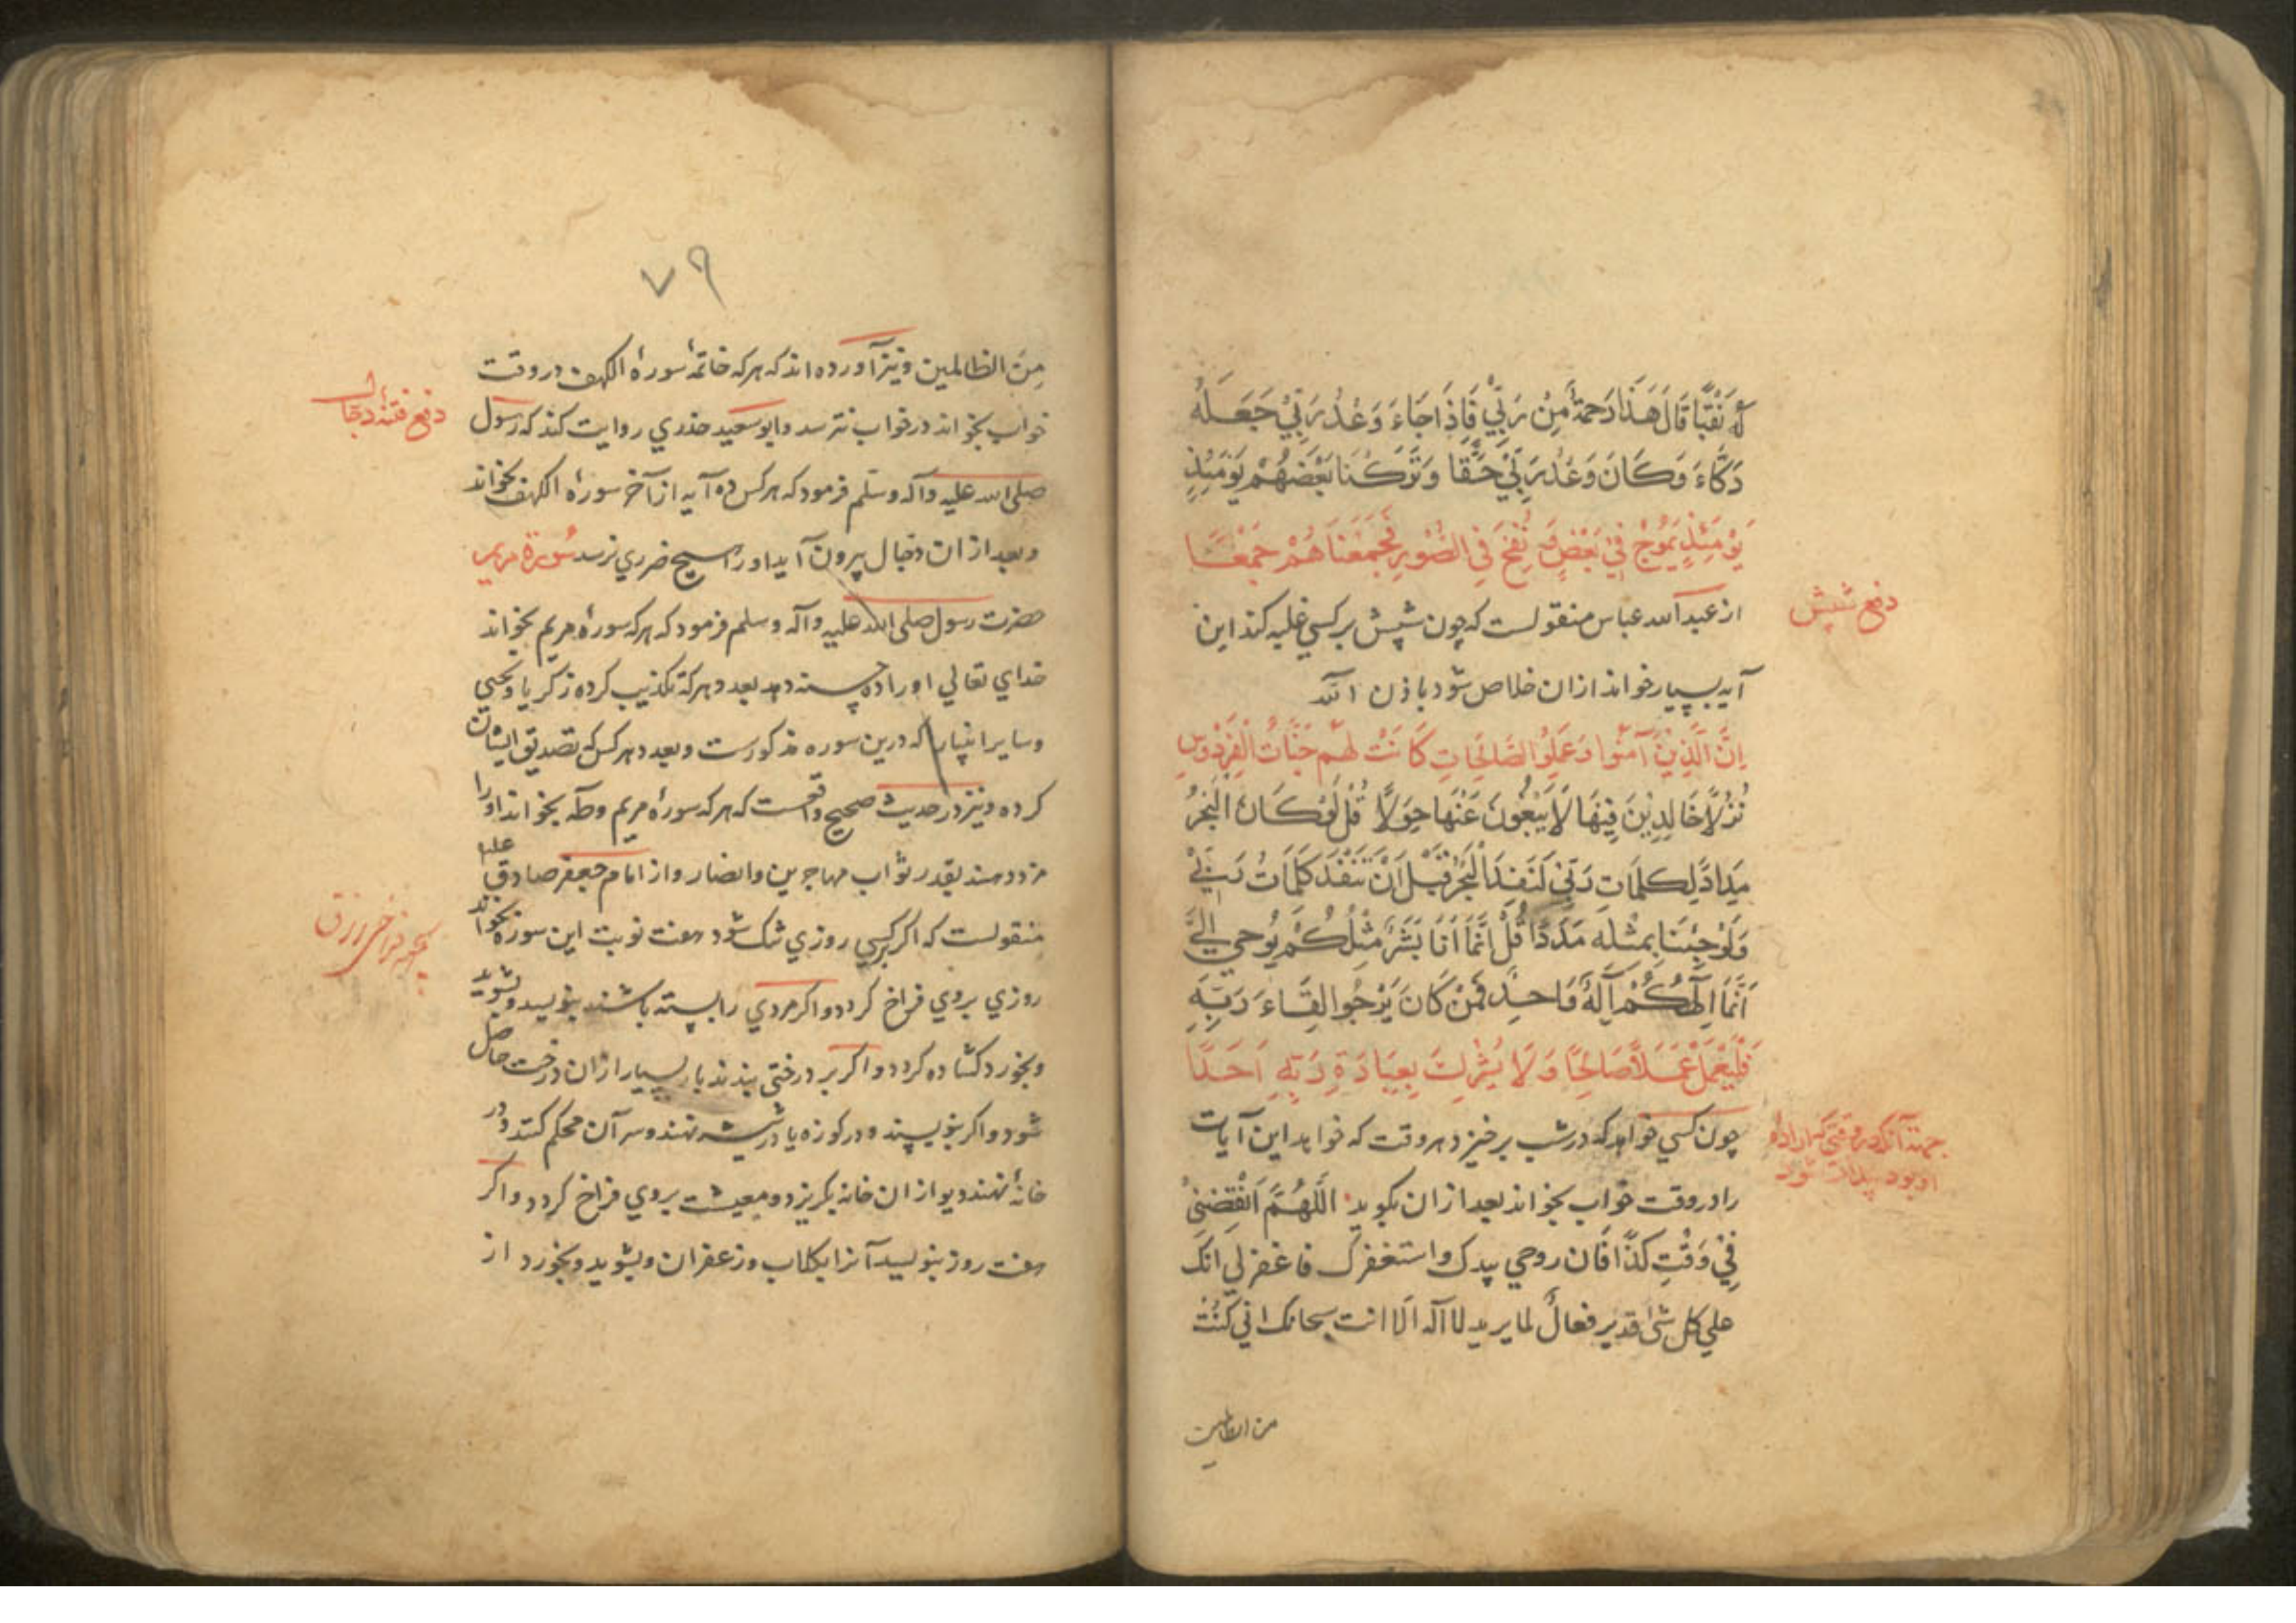 لَهُ نَقْبًا قَالَ هَذَا رَحمَةٌ مِنْ رَبِّي فَاِذَا جَاءَ وَعْدُ رَبِّي جَعَلَهُ
دَكَّاءَ وَكَانَ وَعْدُ رَبِّي حَقًّا وَتَرَكْنَا بَعْضَهُمْ يَوْمَئِذٍ
يَوْمَئِذٍ يَمُوجُ فِي بَعْضٍ وَنُفِخَ فِي الصُّورِ فَجَمَعْنَاهُمْ جَمْعًا
دفع شپش
از عبدالله عباس منقولست که چون شپش بر کسی غلبه کند این
آیه بسیار خواند ازان خلاص شود باذن الله
اِنَّ الَّذِينَ آمَنُوا وَعَمِلُوا الصَّالِحَاتِ كَانَتْ لَهُمْ جَنَّاتُ الْفِرْدَوْسِ
نُزُلًا خَالِدِينَ فِيهَا لَا يَبْغُونَ عَنْهَا حِوَلًا قُلْ لَوْ كَانَ الْبَحْرُ
مِدَادًا لِكَلِمَاتِ رَبِّي لَنَفِدَ الْبَحْرُ قَبْلَ اَنْ تَنْفَدَ كَلِمَاتُ رَبِّي
وَلَوْ جِئْنَا بِمِثْلِهِ مَدَدًا قُلْ اِنَّمَا اَنَا بَشَرٌ مِثْلُكُمْ يُوحَي اِلَيَّ
اَنَّمَا اِلَهُكُمْ اِلَهٌ وَاحِدٌ فَمَنْ كَانَ يَرْجُوا لِقَاءَ رَبِّهِ
فَلْيَعْمَلْ عَمَلًا صَالِحًا وَلَا يُشْرِكْ بِعِبَادَةِ رَبِّهِ اَحَدًا
جهة آنکه هر وقتی که اراده
او بود بیدار شود
چون کسی خواهد که در شب برخیزد هر وقت که خواهد این آیات
را در وقت خواب بخواند بعد ازان بگوید اللّهُمَّ
فِي وَقْتِ كَذَا فَان روحي بیدک و استغفرک فاغفرلي انک
علي کل شئ قدیر فعال لما یرید لا اله الا انت سبحانک اني کنت
من الظالمین
٧٩
مِن الظالمین و نیز آورده اند که هر که خاتمهٔ سورهٔ الکهف در وقت
خواب بخواند در خواب نترسد و ابوسعید خدري روایت کند که رسول
دفع فتنهٔ دجال
صلی الله علیه و آله و سلم فرمود که هر کس ده آیه از آخر سورهٔ الکهف بخواند
و بعد ازان دجال بیرون آید او را هیچ ضرری نرسد سُورة مریم
حضرت رسول صلی الله علیه و آله و سلم فرمود که هر که سورهٔ مریم بخواند
خدای تعالي او را ده حسنه دهد بعدد هر که تکذیب کرده زکریا و یحیي
و سایر انبیا را که درین سوره مذکورست و بعدد هر کس که تصدیق ایشان
کرده و نیز در حدیث صحیح واقعست که هر که سورهٔ مریم و طه بخواند او را
مزد دهند بقدر ثواب مهاجرین و انصار و از امام جعفر صادق علیه
منقولست که اگر بر کسی روزی تنگ شود هفت نوبت این سوره بخواند
بجهة فراخی رزق
روزي بروي فراخ گردد و اگر مردي را بسته باشند بنویسد و بشوید
و بخورد گشاده گردد و اگر بر درختی بندند بار بسیار ازان درخت حاصل
شود و اگر بنویسند و در کوزه یا در شیشه نهند و سر آن محکم کنند و در
خانهٔ نهند دیو ازان خانه بگریزد و معیشت بروي فراخ گردد و اگر
هفت روز بنویسد آنرا بگلاب و زعفران و بشوید و بخورد از